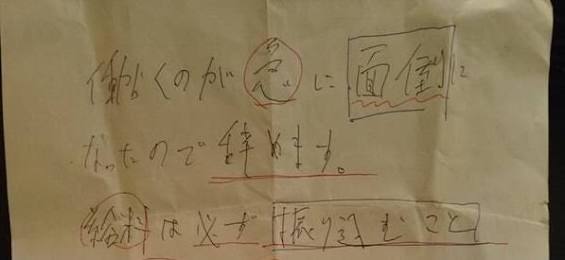 働くのが急に面倒に
なったので辞めます。
給料は必ず振り込むこと